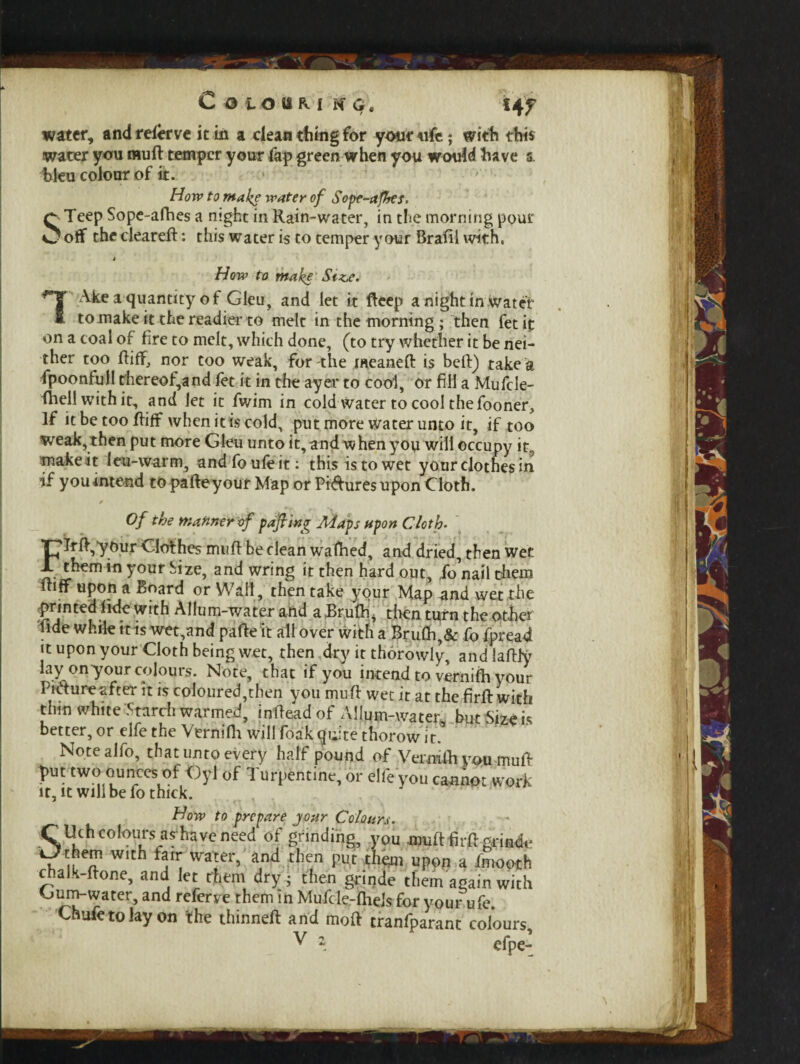 COLOURING. 147
water, and reſerve it in a clean thing for your uſe; with this
water you muſt temper your ſap green when you would have a
bleu colour of it.
How to make water of Sope-aſhes.
STeep Sope-aſhes a night in Rain-water, in the morning pour
off the cleareſt: this water is to temper your Braſil with.
How to make Size.
TAke a quantity of Gleu, and let it ſteep a night in water
to make it the readier to melt in the morning; then ſet it
on a coal of fire to melt, which done, (to try whether it be nei-
ther too ſtiff, nor too weak, for the meaneſt is beſt) take a
ſpoonfull thereof,and ſet it in the ayer to cool, or fill a Muſcle-
ſhell with it, and let it ſwim in cold water to cool the ſooner,
If it be too ſtiff when it is cold, put more water unto it, if too
weak, then put more Gleu unto it, and when you will occupy it,
make it leu-warm, and ſo uſe it: this is to wet your clothes in
if you intend to paſte your Map or Pictures upon Cloth.
Of the manner of paſting Maps upon Cloth.
FIrſt, your Clothes muſt be clean waſhed, and dried, then wet
them in your Size, and wring it then hard out, ſo nail them
ſtiff upon a Board or Wall, then take your Map and wet the
printed ſide with Allum-water and a Bruſh, then turn the other
ſide while it is wet,and paſte it all over with a Bruſh,& ſo ſpread
it upon your Cloth being wet, then dry it thorowly, and laſtly
lay on your colours. Note, that if you intend to verniſh your
Picture after it is coloured,then you muſt wet it at the firſt with
thin white Starch warmed, inſtead of Allum-water, but Size is
better, or elſe the Verniſh will ſoak quite thorow it.
Note alſo, that unto every half pound of Verniſh you muſt
put two ounces of Oyl of Turpentine, or elſe you cannot work
it, it will be ſo thick.
How to prepare your Colours.
SUch colours as have need of grinding, you muſt firſt grinde
them with fair water, and then put them upon a ſmooth
chalk-ſtone, and let them dry; then grinde them again with
Gum-water, and reſerve them in Muſcle-ſhels for your uſe.
Chuſe to lay on the thinneſt and moſt tranſparant colours,
V 2 eſpe-